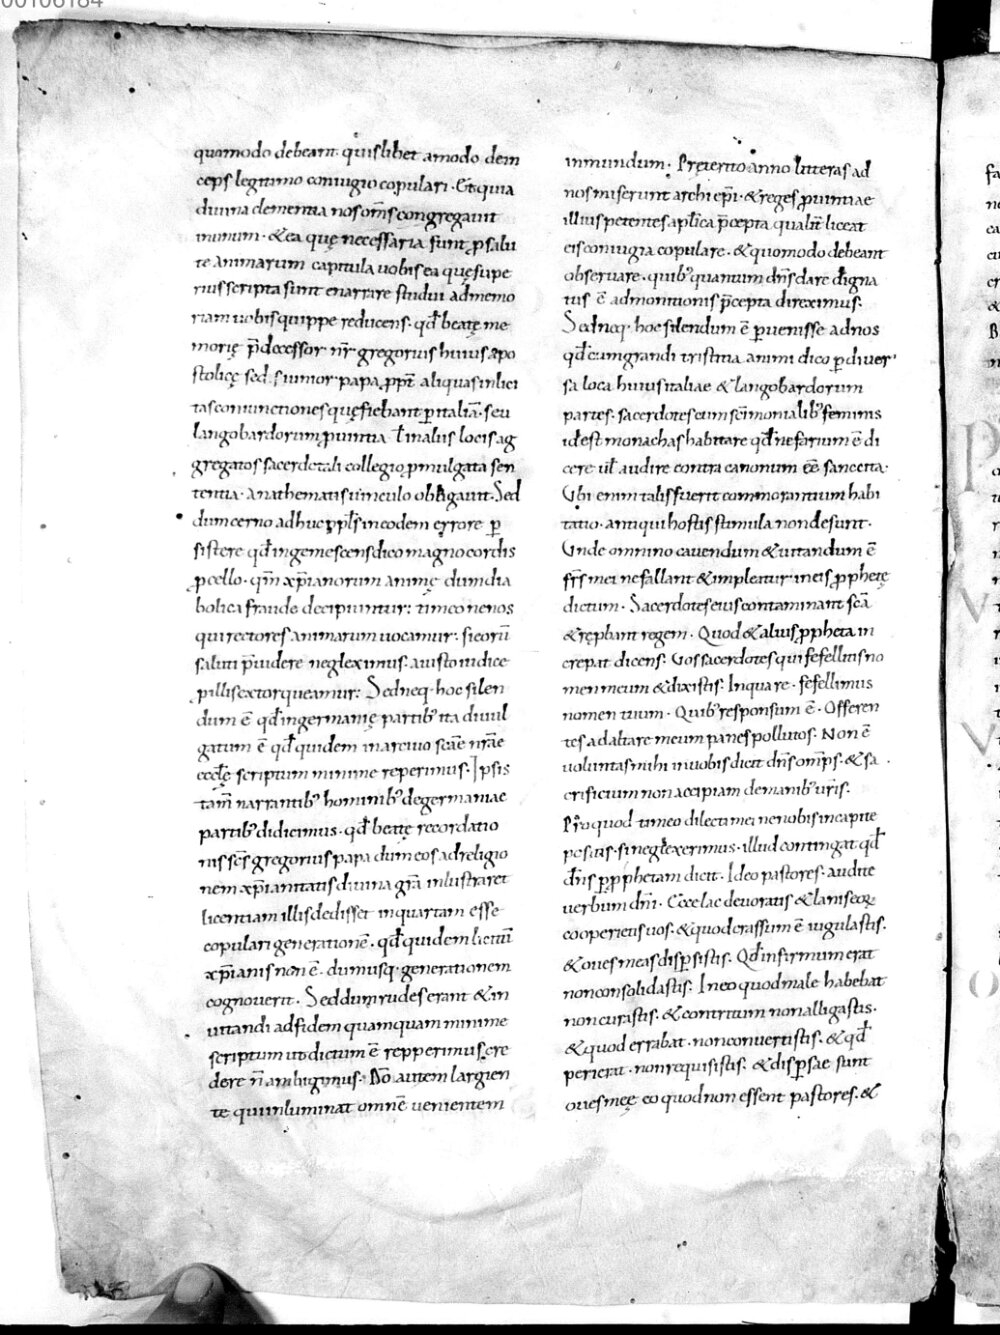 00106184
quomodo debeant quislibet amodo dein
ceps legitimo coniugio copulari · Et quia
diuina clementia nos om̅s congregauit
in unum · & ea quę necessaria sunt ꝓ salu
te animarum capitula uobis ea quę supe
rius scripta sunt enarrare studui ad memo
riam uobis quippe reducens · qd̅ beatę me
morię p̅decessor nr̅ gregorius huius apo
stolicę sed · s iunior · papa ꝓpt̅ aliquas inlici
tas coniunctiones quę fiebant ꝑ italia̅ · seu
langobardorum ꝓuintia ł in aliis locis ag
gregatos sacerdotali collegio ꝓmulgata sen
tentia · anathematis uinculo obligauit · Sed
dum cerno adhuc ppl̅s in eodem errore ꝑ
sistere qd̅ ingemescens dico magno cordis
ꝓcello · qm̅ xp̅ianorum animę dum dia
bolica fraude decipiuntur : timeo ne nos
qui rectores animarum uocamur · si eoru̅
saluti p̅uidere neglexim᷒us · a iusto iudice
pillis extorqueamur : Sed neq · hoc silen
dum e̅ qd̅ in germanię partib᷒ ita diuul
gatum e̅ qd̅ quidem in arciuo sc̅ae nr̅ae
eccl̅ę scriptum minime reperimus · Ipsis
tam̅ narrantib᷒ hominib᷒ de germaniae
partib᷒ didicimus · qd̅ beatę recordatio
nis sc̅s gregorius papa dum eos ad religio
nem xp̅ianitatis diuina gr̅a inlustraret
licentiam illis dedisset in quartam esse
copulari generatione̅ · qd̅ quidem licitu̅
xp̅ianis non e̅ · dum usq · generationem
cognouerit · Sed dum rudes erant & in
uitandi ad fidem quamquam minime
scriptum ut dictum e̅ repperimus cre
dere n̅ ambigimus · Do̅ autem largien
te qui inluminat omne̅ uenientem
in mundum · Pręterito anno litteras ad
nos miserunt archi ep̅i · & reges ꝓuintiae
illius petentes ap̅lica p̅cepta qualit̅ liceat
eis coniugia copulare · & quomodo debeant
obseruare · quib᷒ quantum dn̅s dare digna
tus e̅ admonitionis p̅cepta direximus ·
Sed neq · hoc silendum e̅ ꝑuenisse ad nos
qd̅ cum grandi tristitia animi dico ꝑ diuer
sa loca huius italiae & langobardorum
partes · sacerdotes cum sc̅imonialib᷒ feminis
id est monachas habitare qd̅ nefarium e̅ di
cere ul̅ audire contra canonum e̅e sancita ·
Ubi enim talis fuerit commorantium habi
tatio · antiqui hostis stimula non desunt ·
Unde omnino cauendum & uitandum e̅
fr̅s mei ne fallant & impleatur in eis ꝓphetę
dictum · Sacerdotes eius contaminant sc̅a
& rep̅bant regem · Quod & alius ꝓpheta in
crepat dicens · Uos sacerdotes qui fefellitis no
men meum & dixistis · In qua re · fefellimus
nomen tuum · Quib᷒ responsum e̅ · Offeren
tes ad altare meum panes pollutos · Non e̅
uoluntas mihi in uobis dicit dn̅s om̅ps · & sa
crificium non accipiam de manib᷒ ur̅is ·
Pro quod timeo dilecti mei ne nobis in capite
positis · si neglexerimus · illud contingat qd̅
dn̅s ꝑ ꝓphetam dicit · Ideo pastores · audite
uerbum dn̅i · Ecce lac deuoratis & lanis eorꝝ
cooperietis uos · & quod crassum e̅ uigulastis ·
& oues meas disꝑsistis · Qd̅ infirmum erat
non consolidastis · In eo quod male habebat
non curastis · & contritum non alligastis ·
& quod errabat · non conuertistis · & qd̅
perierat · non requisistis · & disꝑsae sunt
oues meę eo quod non essent pastores · &